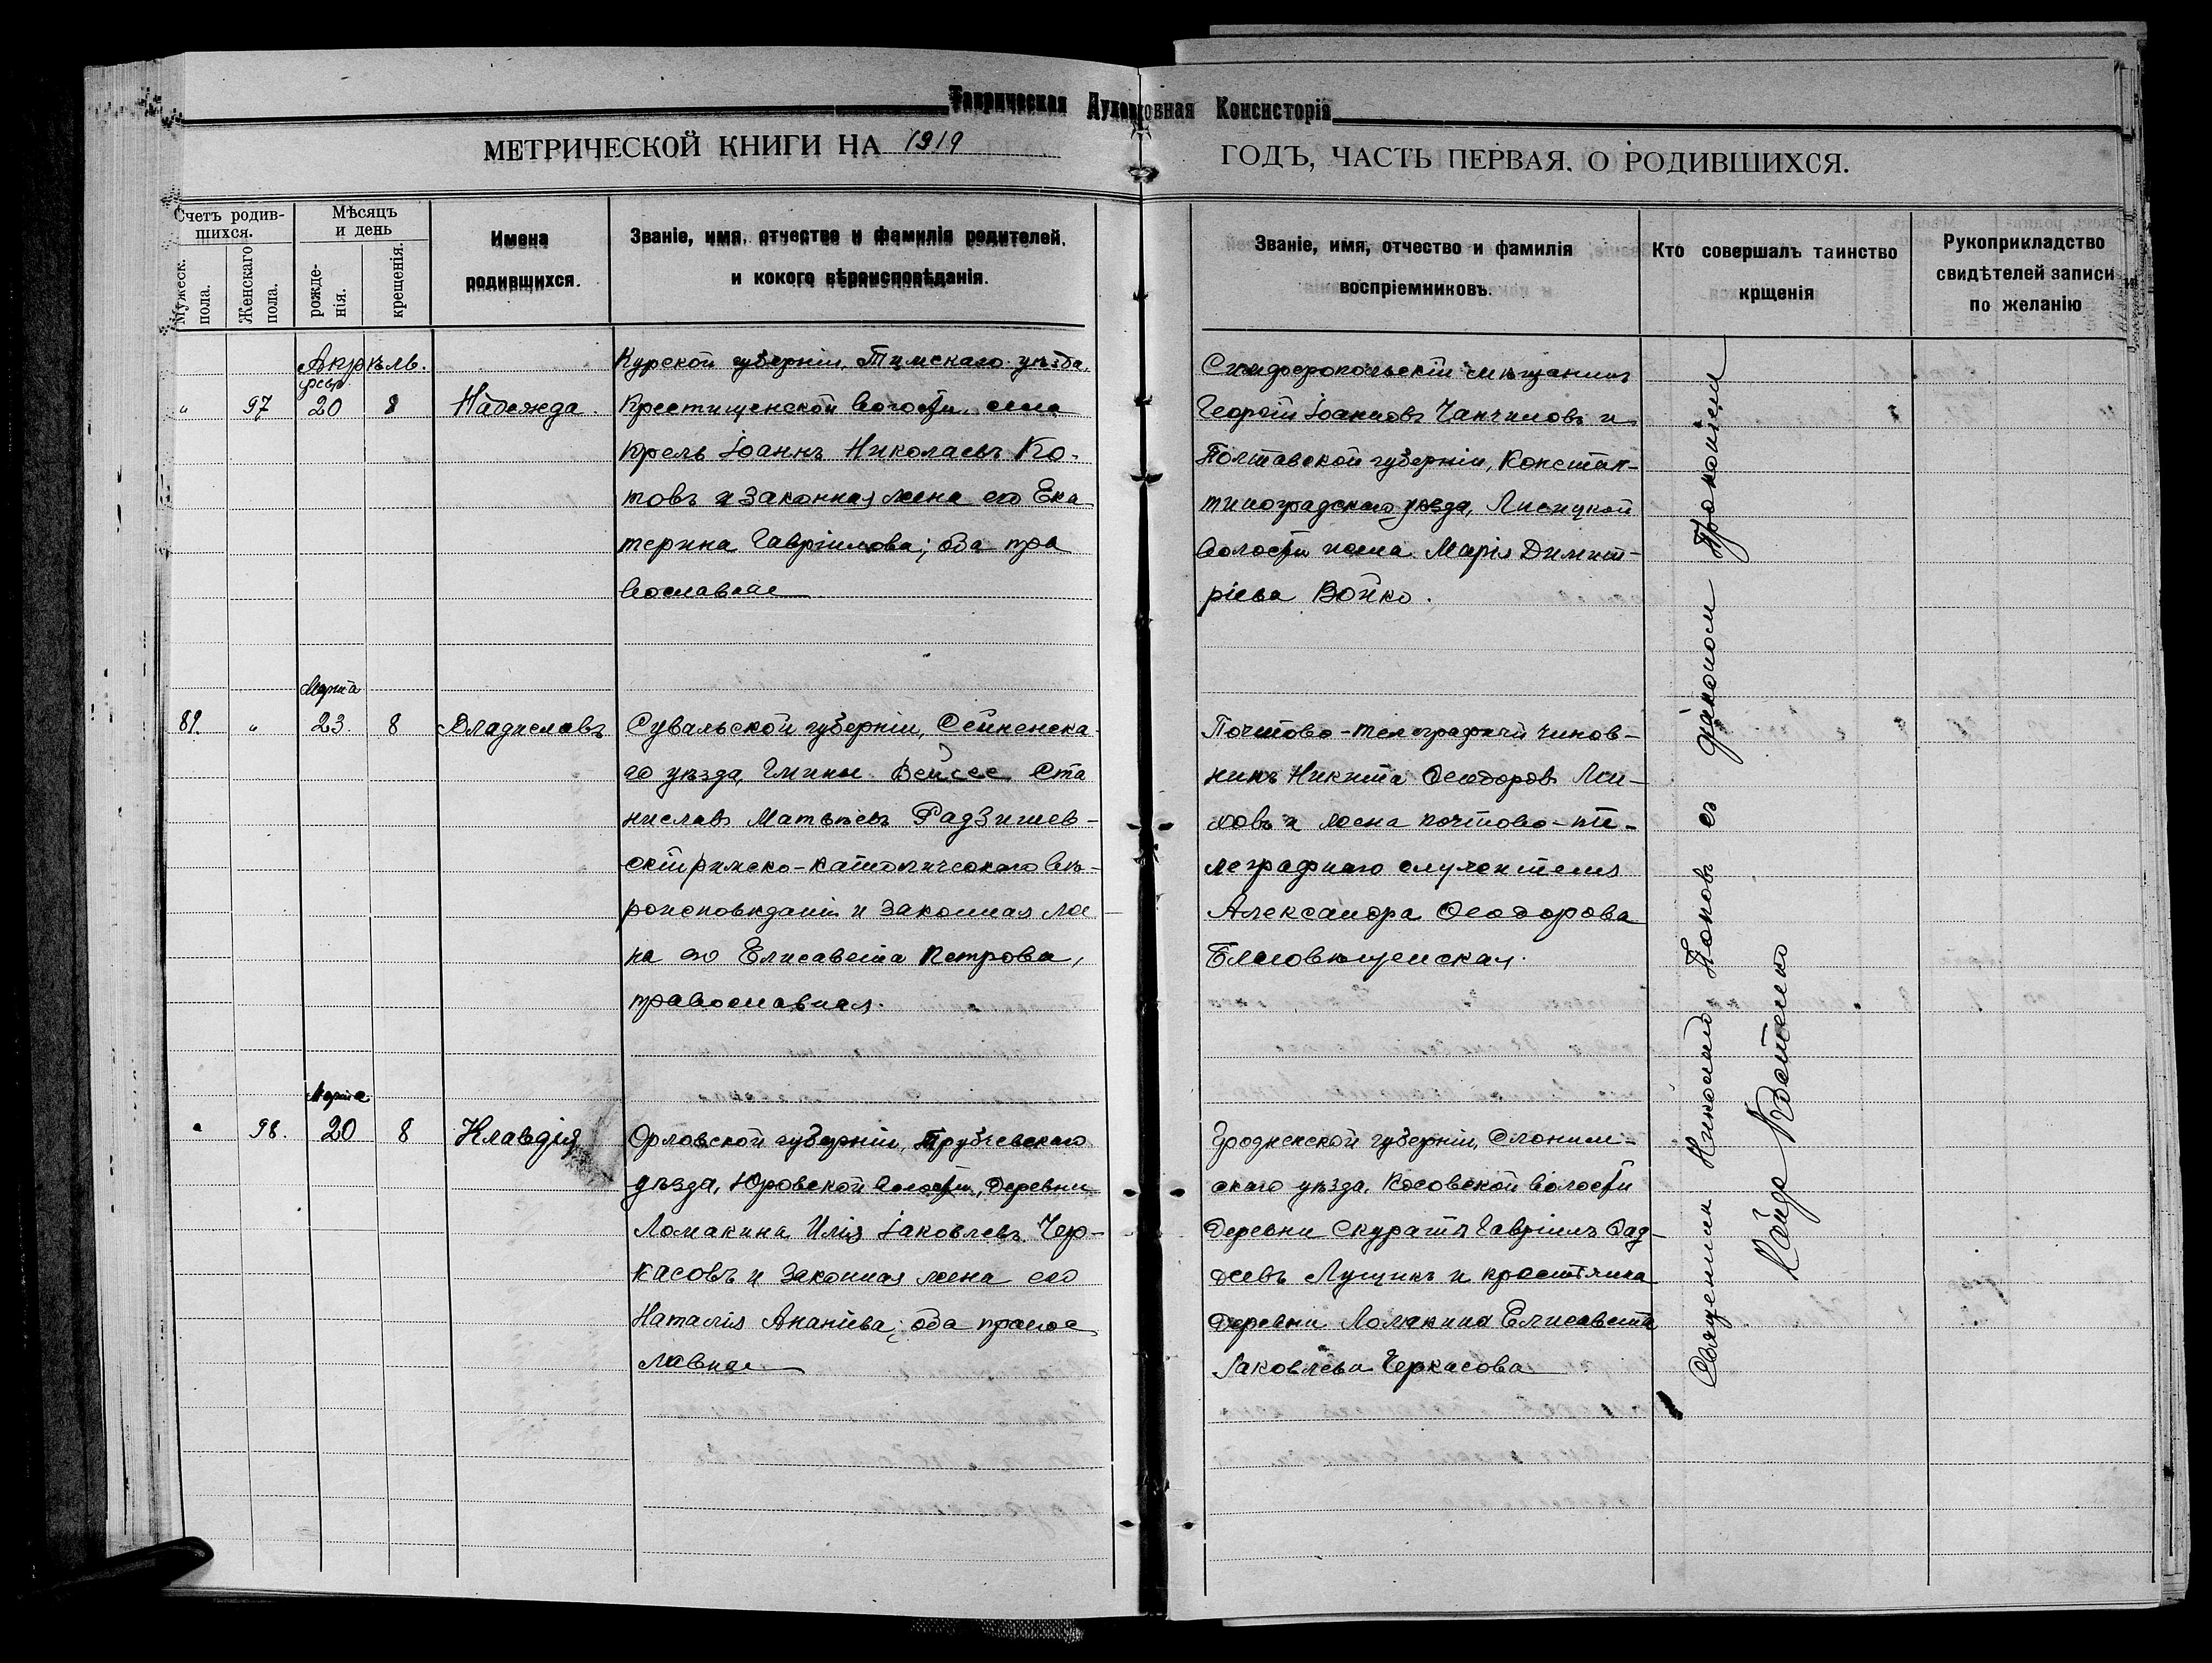 Таврическая Духовная Консисторія
МЕТРИЧЕСКОЙ КНИГИ НА 1919 ГОДЪ, ЧАСТЬ ПЕРВАЯ. О РОДИВШИХСЯ.
Счетъ родив-
шихся.
Мужеск.
пола.
Женскаго
пола.
Мѣсяцъ
и день
рожде-
нія.
крещенія.
Имена
родившихся.
Званіе, имя, отчество и фамилія родителей,
и кокого вѣроисповѣданія.
Званіе, имя, отчество и фамилія
воспріемниковъ.
Кто совершалъ таинство
крщенія
Рукоприкладство
свидѣтелей записи
по желанію
Апрѣль.
февр
" 97 20 8 Надежда.
Курской губерніи, Тимскаго уѣзда,
Крестищенской волости села
Іоаннъ Николаевъ Ко-
товъ и законная жена его Ека
терина Гавріилова; оба пра
вославные
Симферопольскій мѣщанинъ
Георгій Іоанновъ Чанчиловъ и
Полтавской губерніи, Констан-
тиноградскаго уѣзда,
волости жена Марія Димит-
ріева Бойко.
Марта
89. " 23 8 Владиславъ
Сувальской губерніи, Сейненска-
го уѣзда, Гмины Вейсее Ста
ниславъ Матѣевъ Радзишев-
скій римско-католическаго вѣ-
роисповѣданія и законная же
на его Елисавета Петрова,
православная.
Почтово-телеграфный чинов-
никъ Никита Ѳеодоровъ
и жена почтово-те-
леграфнаго служителя
Александра Ѳеодорова
Благовѣщенская.
Марта
" 98. 20 8 Клавдія
Орловской губерніи, Трубчевскаго
уѣзда, Юровской волости, деревни
Ломакина Илія Іаковлевъ Чер-
касовъ и законная жена его
Наталія Ананіева; оба правос
лавные
Гродненской губерніи, Слоним-
скаго уѣзда, Косовской волости
деревни Скураты Гавріилъ Ѳад-
деевъ Лущикъ и крестьянка
деревни Ломакина Елисавета
Іаковлева Черкасова
Священник Николай Поповъ съ діаконом Прокопіем
Костенко